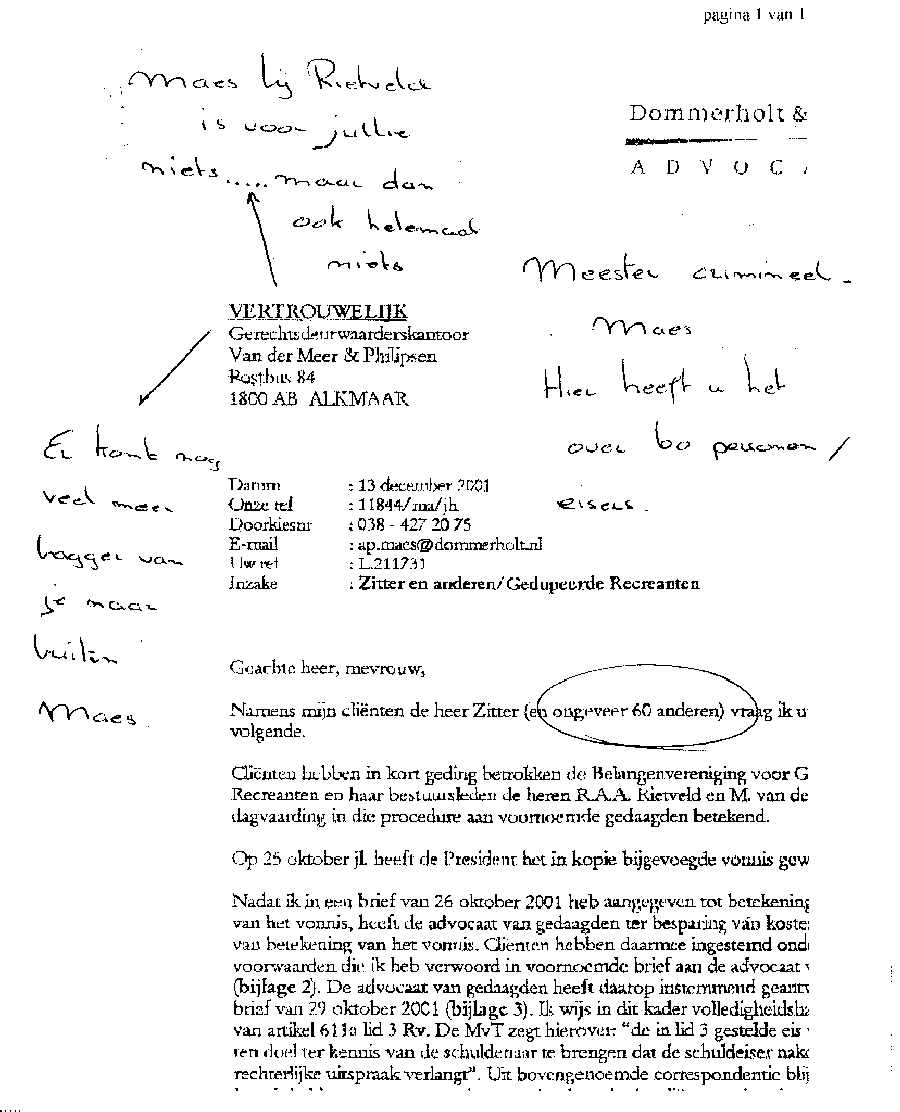 pagina 1 van 1
Maes bij Rietveld
is voor jullie
niets..... maar dan
ook helemaal
niets
Dommerholt &
ADVOCA
Meester crimineel -
Maes
Hier heeft u het
over 60 personen /
eisers.
VERTROUWELIJK
Gerechtsdeurwaarderskantoor
Van der Meer & Philipsen
Postbus 84
1800 AB ALKMAAR
Er komt nog
veel meer
bagger van
je naar
buiten
Maes
Datum : 13 december 2001
Onze ref : 11844/ma/jh
Doorkiesnr : 038 - 427 20 75
E-mail : ap.maes@dommerholt.nl
Uw ref : L.211731
Inzake : Zitter en anderen/Gedupeerde Recreanten
Geachte heer, mevrouw,
Namens mijn cliënten de heer Zitter (en ongeveer 60 anderen) vraag ik u
volgende.
Cliënten hebben in kort geding betrokken de Belangenvereniging voor G
Recreanten en haar bestuursleden de heren R.A.A. Rietveld en M. van de
dagvaarding in die procedure aan voornoemde gedaagden betekend.
Op 25 oktober jl. heeft de President het in kopie bijgevoegde vonnis gew
Nadat ik in een brief van 26 oktober 2001 heb aangegeven tot betekening
van het vonnis, heeft de advocaat van gedaagden ter besparing van koste
van betekening van het vonnis. Cliënten hebben daarmee ingestemd ond
voorwaarden die ik heb verwoord in voornoemde brief aan de advocaat v
(bijlage 2). De advocaat van gedaagden heeft daarop instemmend geant
brief van 29 oktober 2001 (bijlage 3). Ik wijs in dit kader volledigheidsha
van artikel 611a lid 3 Rv. De MvT zegt hierover: "de in lid 3 gestelde eis
ten doel ter kennis van de schuldenaar te brengen dat de schuldeiser nako
rechterlijke uitspraak verlangt". Uit bovengenoemde correspondentie blij